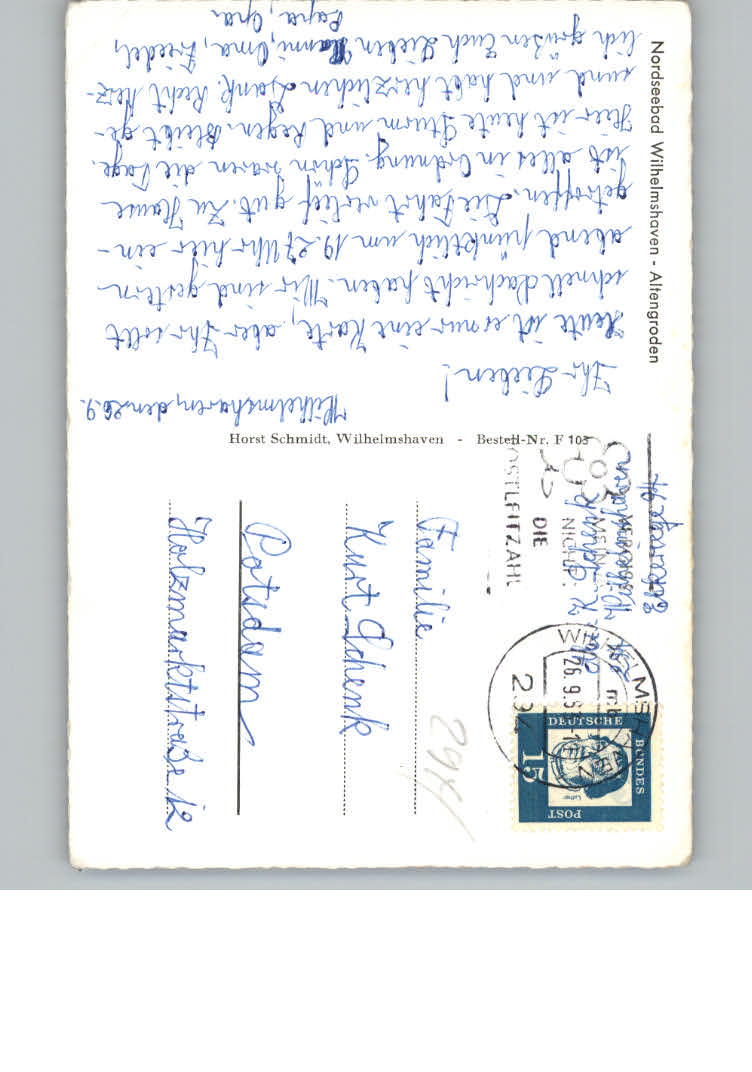 Nordseebad Wilhelmshaven - Altengroden
Wilhelmshaven, den 26.9.
Ihr Lieben!
Heute ist es nur eine Karte, aber Ihr sollt
schnell Nachricht haben. Wir sind gestern
abend pünktlich um 19.27 Uhr hier ein-
getroffen. Die Fahrt verlief gut. Zu Hause
ist alles in Ordnung. Schön waren die Tage.
Hier ist heute Sturm und Regen. Bleibt ge-
sund und habt herzlichen Dank. Recht herz-
lich grüßen Euch Lieben Hanni, Oma, Friedel,
Papa, Opa
Horst Schmidt, Wilhelmshaven - Bestell-Nr. F 103
K. Schenk
Wilhelmshaven
VERGISS
MEIN
NICHT
DIE
POSTLEITZAHL
WILHELMSHAVEN
26.9.6
294
DEUTSCHE
BUNDES
POST
15
Luther
Familie
Kurt Schenk
Potsdam
Holzmarktstraße 12